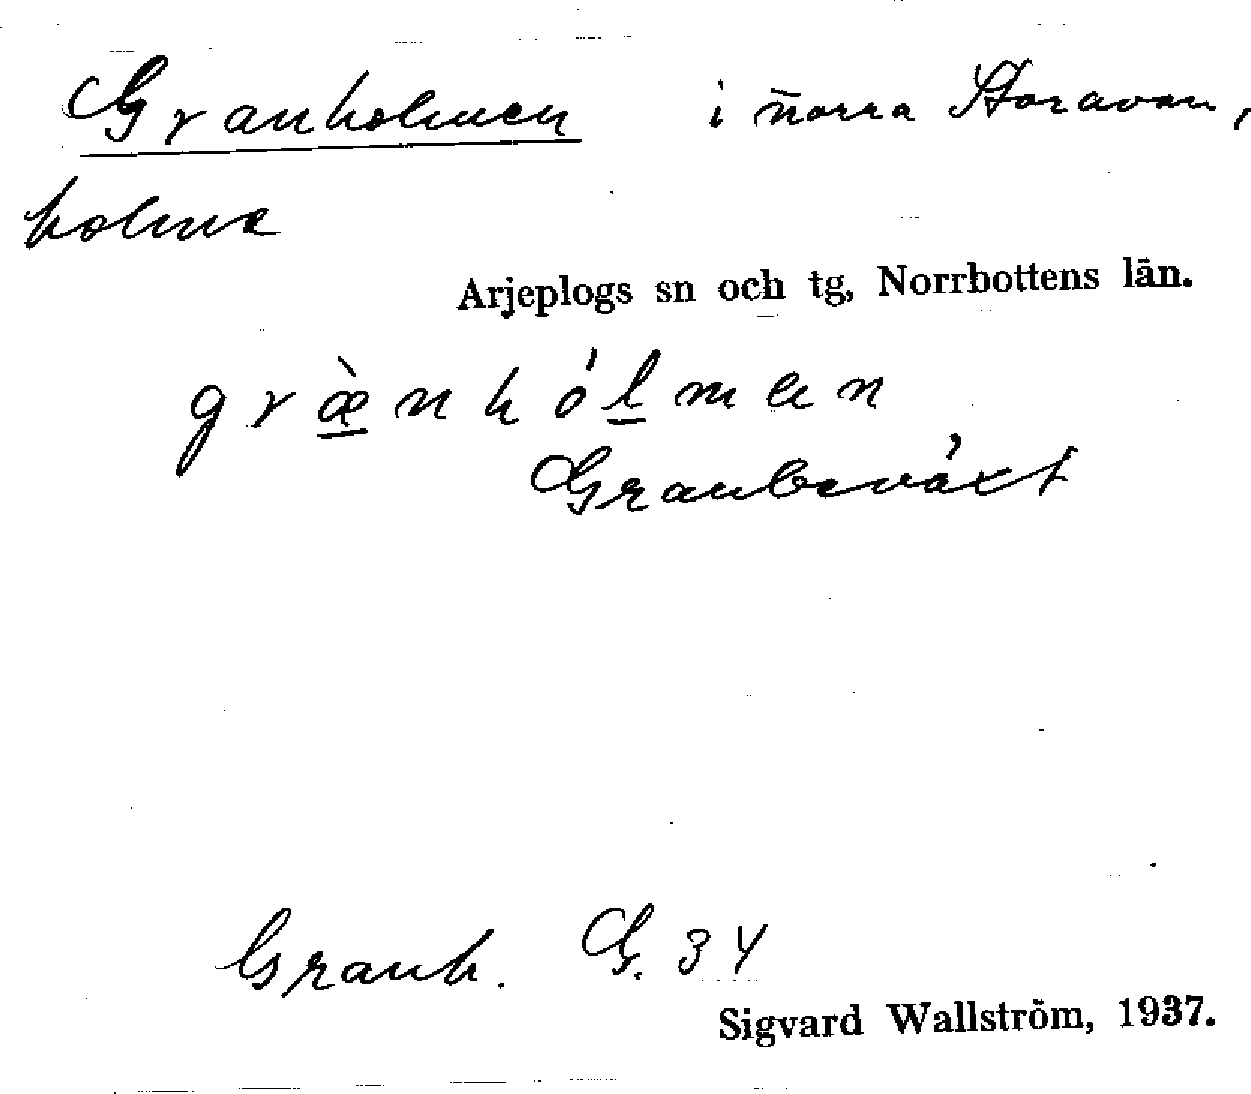 Granholmen i norra Storavan,
holme
Arjeplogs sn och tg, Norrbottens län.
græ̀nhólmen
Granbeväxt
Granh. G. 34
Sigvard Wallström, 1937.